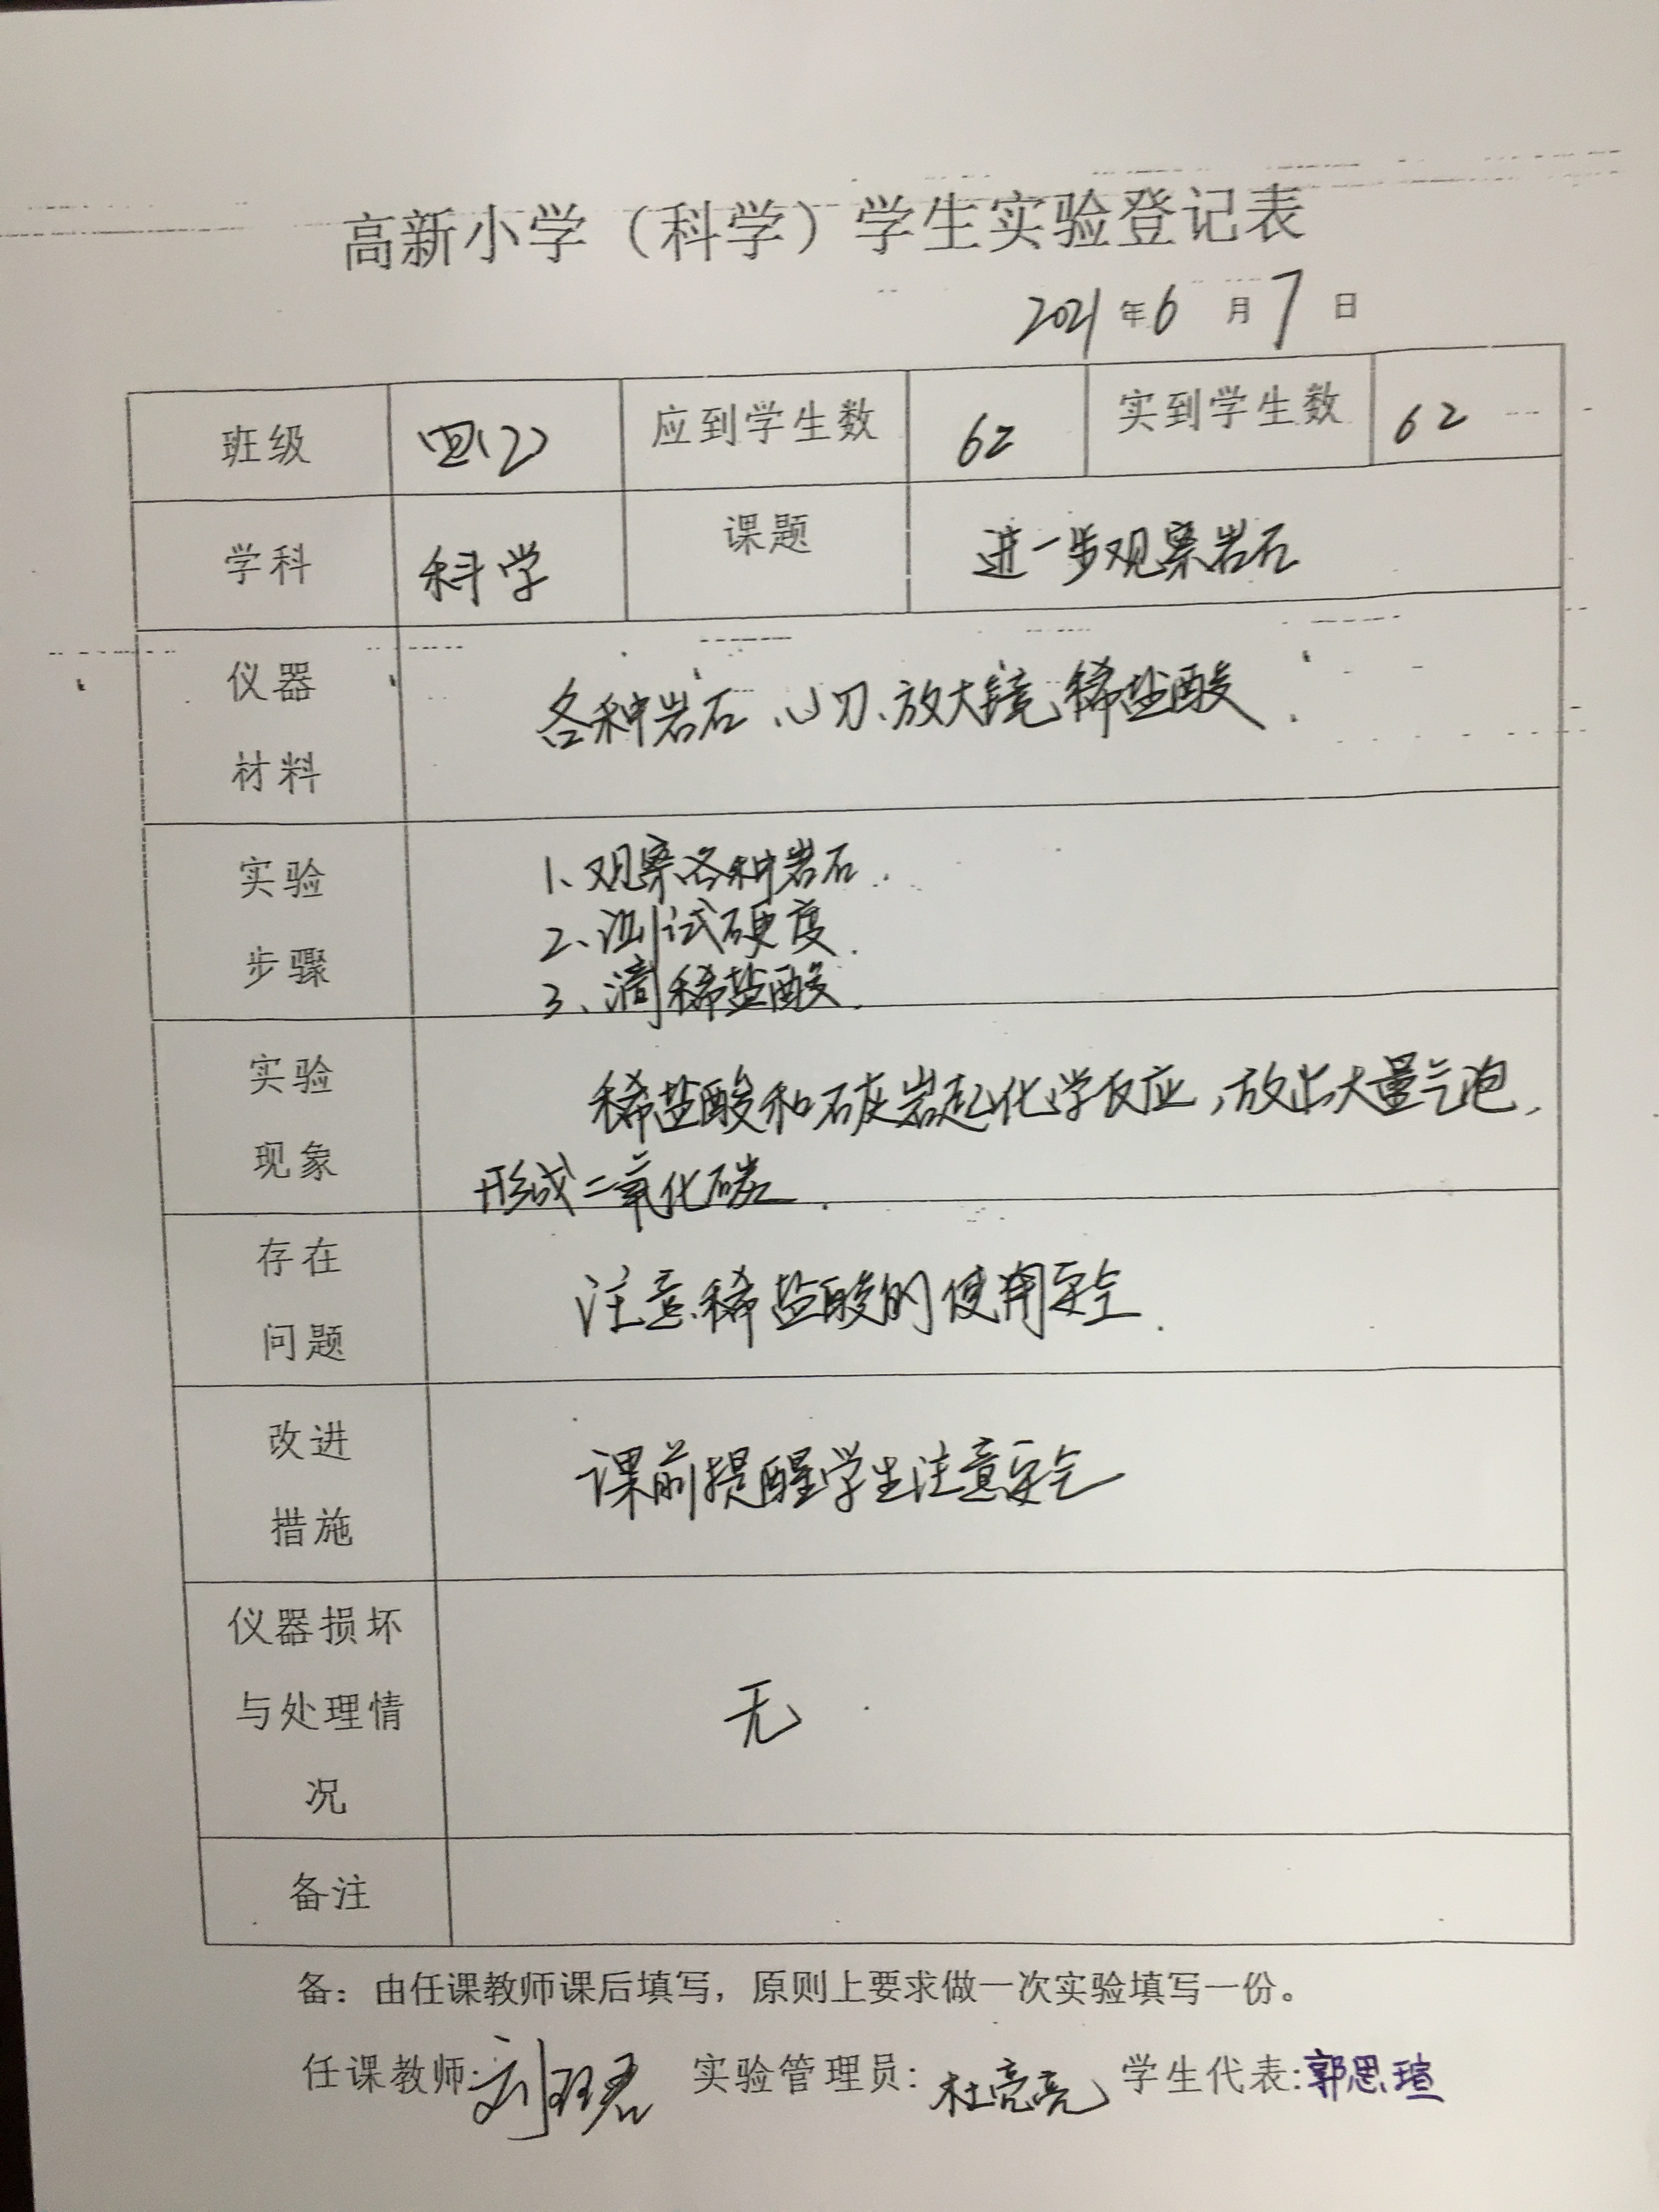 高新小学（科学）学生实验登记表
2021年6月7日
班级 四(2) 应到学生数 62 实到学生数 62
学科 科学 课题 进一步观察岩石
仪器
材料
各种岩石、小刀、放大镜、稀盐酸.
实验
步骤
1、观察各种岩石.
2、测试硬度.
3、滴稀盐酸.
实验
现象
稀盐酸和石灰岩起化学反应，放出大量气泡，
形成二氧化碳.
存在
问题
注意稀盐酸的使用安全.
改进
措施
课前提醒学生注意安全
仪器损坏
与处理情
况
无.
备注
备：由任课教师课后填写，原则上要求做一次实验填写一份。
任课教师:刘珺 实验管理员:杜亮亮 学生代表:郭思瑄